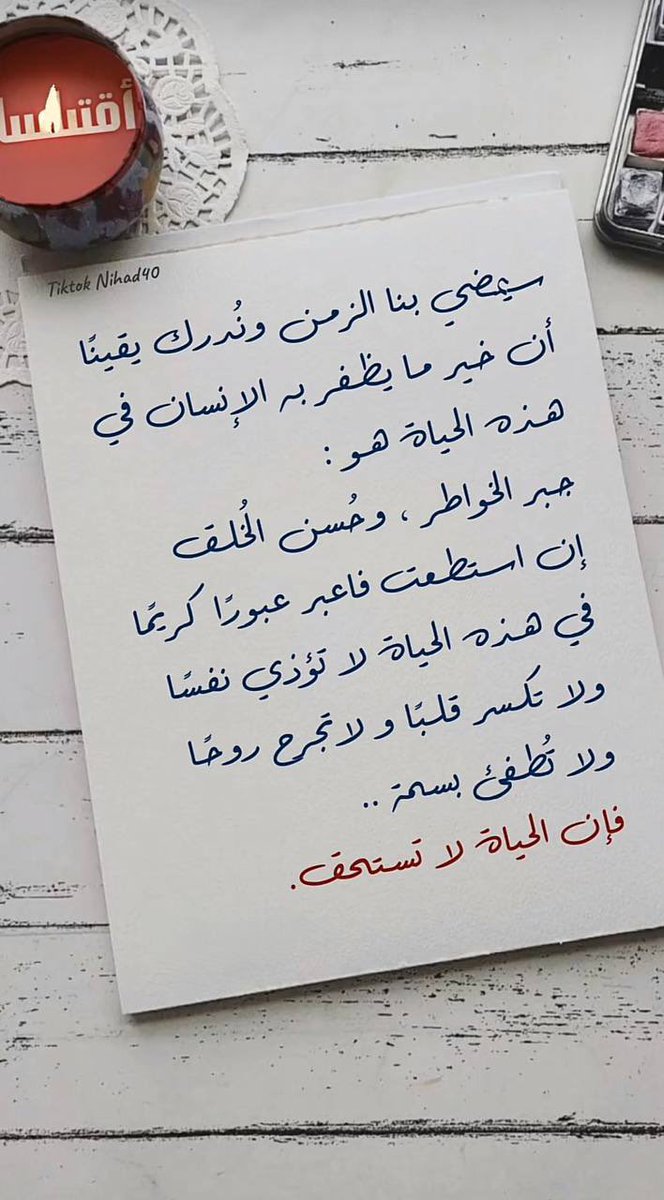 أقتباسات
Tiktok Nihad40
سيمضي بنا الزمن ونُدرك يقينًا
أن خير ما يظفر به الإنسان في
هذه الحياة هو :
جبر الخواطر ، وحُسن الخُلق
إن استطعت فاعبر عبورًا كريمًا
في هذه الحياة لا تؤذي نفسًا
ولا تكسر قلبًا و لا تجرح روحًا
ولا تُطفئ بسمة ..
فإن الحياة لا تستحق.